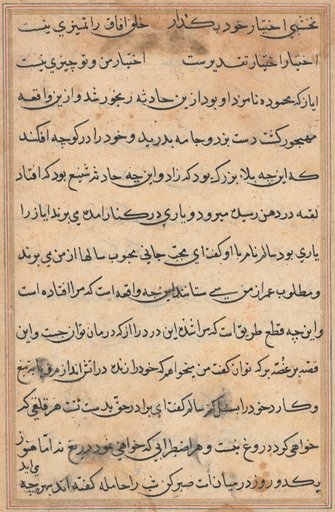 نخشبی اختیار خود بگذار خلق آفاق را تمیزی نیست
اختیار اختیار تقدیر ست اختیار من و تو چیزی نیست
ایاز که محموده نامزد او بود ازین حادثه رنجور شد و ازین واقعه
مهجور گشت دست بزد و جامه بدرید و خود را در کوچه افکند
که این چه بلا بزرک بود که زاد و این چه حادثه شنیع بود که افتاد
لقمه در دهن رسیده میرود و یاری در کنار آمده می برند ایاز را
یاری بود سالم نام با او گفت ای محب جانی محبوب سالها از من می برند
و مطلوب عمر از من می ستانند این چه واقعه است که مرا افتاده است
و این چه قطع طریق است که مرا شده این درد را از که درمان توان جست و این
قصه پر غصه بر که توان گفت من میخواهم که خود را زنده در آتش اندازم و یا به تیغ
و کارد خود را بسمل کنم سالم گفت ای برادر حق بدست تست هر قلقی که
خواهی کرد دروغ نیست و هر اضطرابی که خواهی نمود دروغ نه اما هنوز
یکدو روز در میان است صبر کن شب را حامله گفته اند سر چه